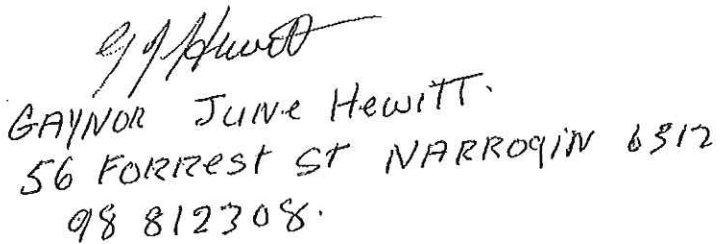 GJ Hewitt
GAYNOR JUNe HewiTT.
56 FORResT ST NARROGIN 6312
98 812308.